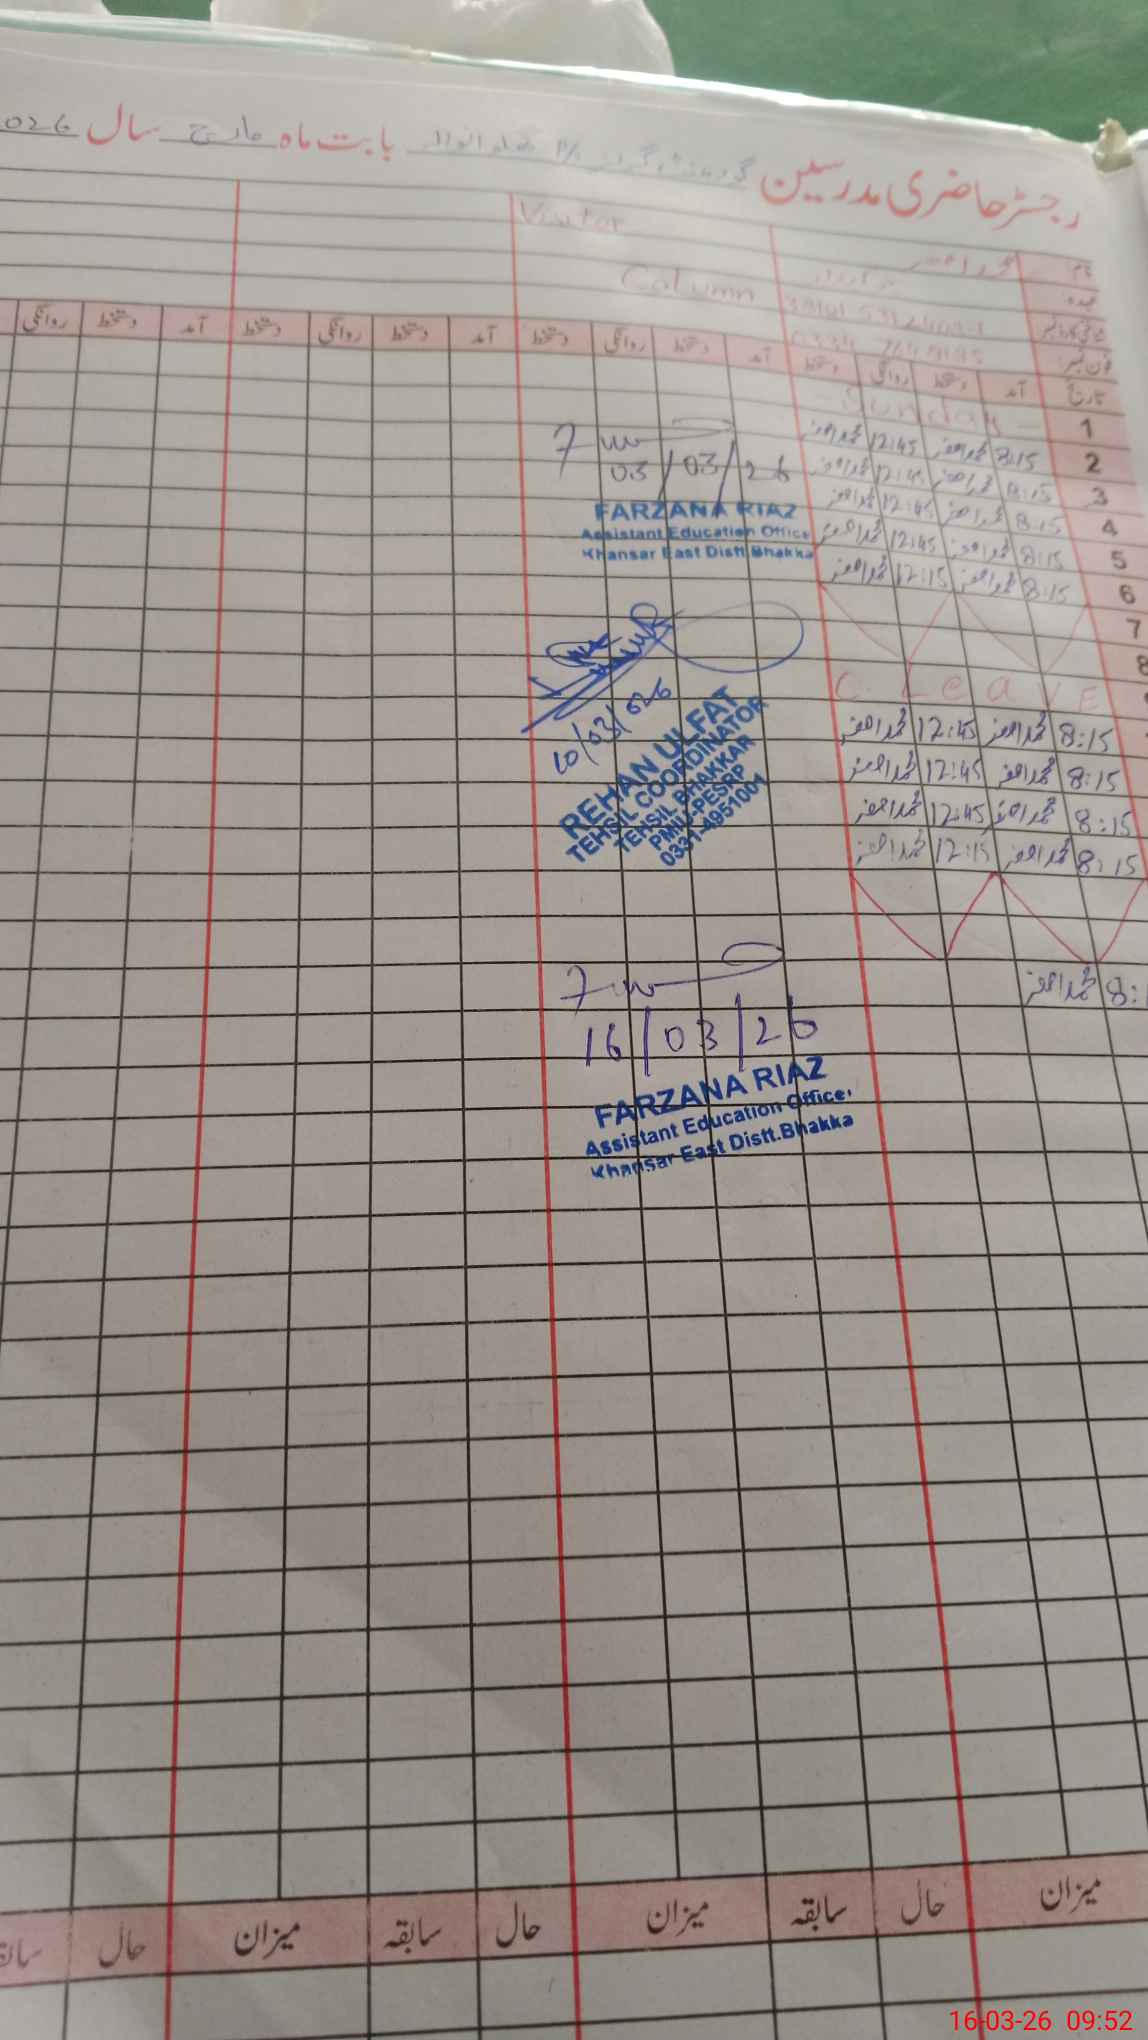 رجسٹر حاضری مدرسین گورنمنٹ گرلز P/S بابت ماہ مارچ سال 2026
Visitor
Column
نام
عہدہ
فون نمبر
تاریخ آمد دستخط روانگی دستخط آمد دستخط روانگی دستخط آمد دستخط روانگی دستخط آمد دستخط روانگی
1 Sunday
2 8:15 محمد اصغر 12:45 محمد اصغر
3 8:15 محمد اصغر 12:45 محمد اصغر
4 8:15 محمد اصغر 12:45 محمد اصغر
5 8:15 محمد اصغر 12:45 محمد اصغر
6 8:15 محمد اصغر 12:15 محمد اصغر
7
8
C. LEAVE
8:15 محمد اصغر 12:45 محمد اصغر
8:15 محمد اصغر 12:45 محمد اصغر
8:15 محمد اصغر 12:45 محمد اصغر
8:15 محمد اصغر 12:15 محمد اصغر
8: محمد اصغر
03/03/26
FARZANA RIAZ
Assistant Education Office
Khansar East Distt.Bhakka
10/03/026
REHAN ULFAT
TEHSIL COORDINATOR
TEHSIL BHAKKAR
PMIU-PESRP
0331-4951001
16/03/26
FARZANA RIAZ
Assistant Education Office
Khansar East Distt.Bhakka
میزان حال سابقہ میزان حال سابقہ میزان حال سابقہ
16-03-26 09:52